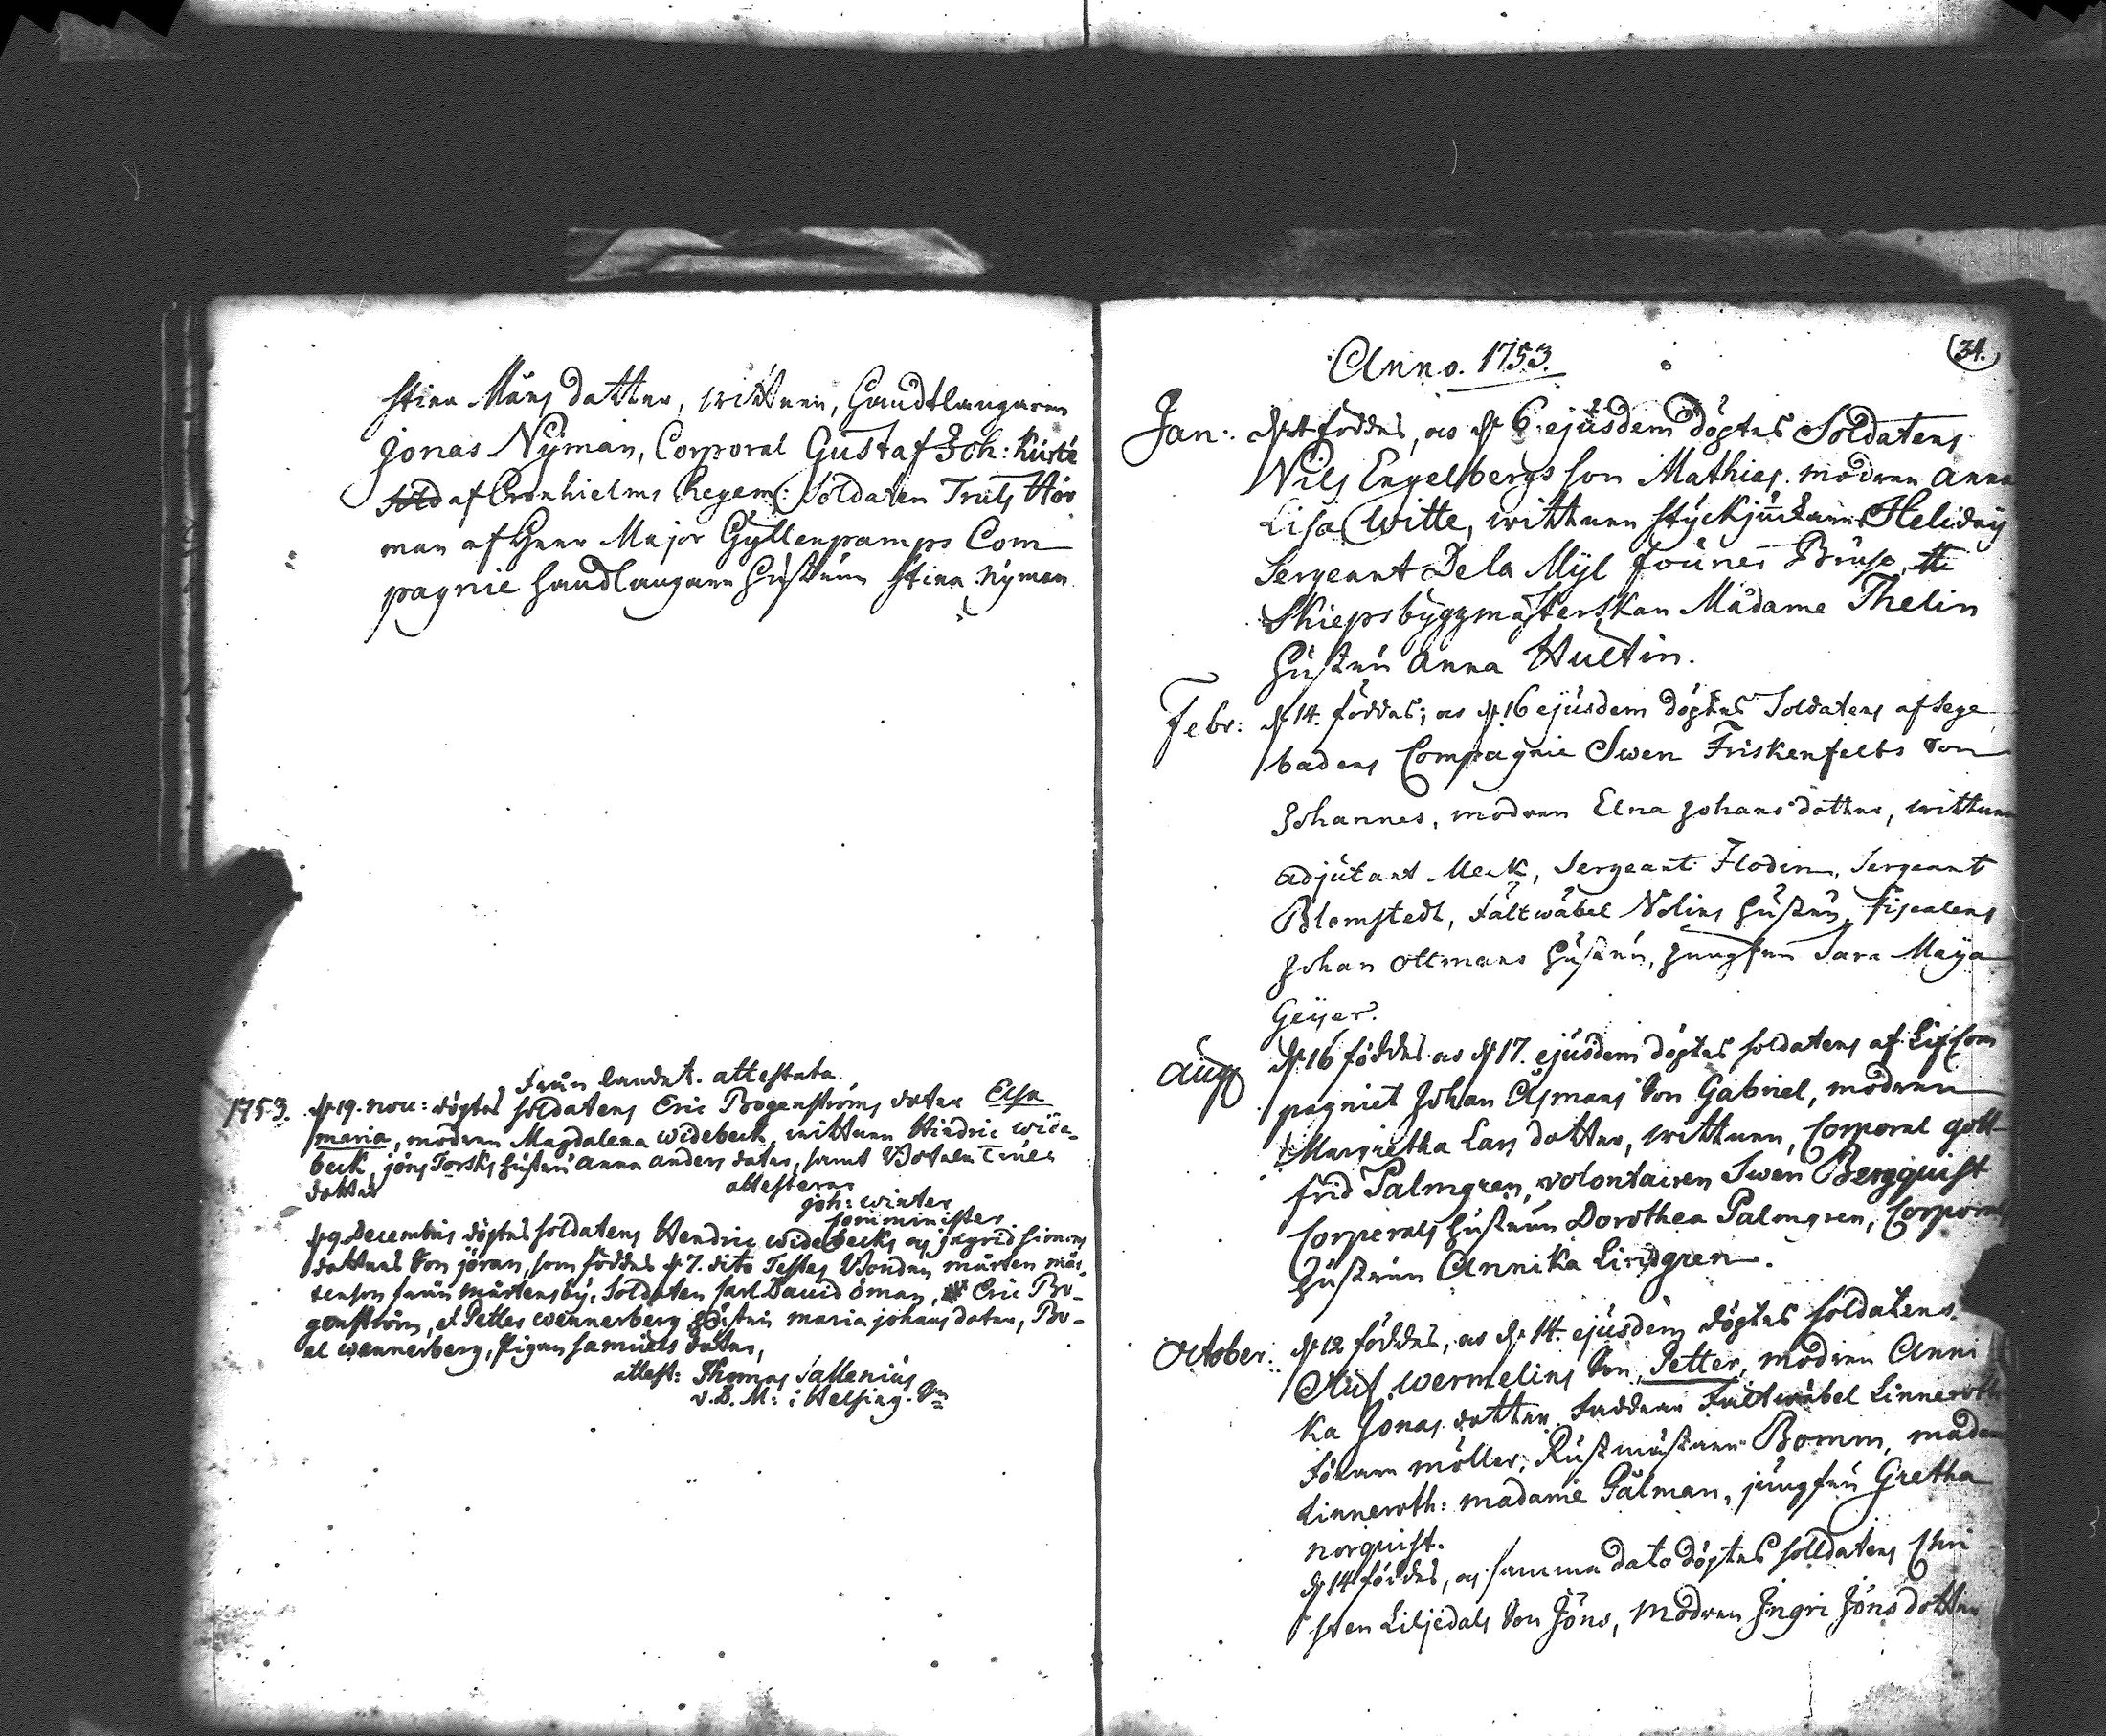 Stina Måns dotter, wittnen, Handtlangaren
Jonas Nÿman, Corporal Gustaf Joh: Kurte
af Cronhielms Regem: Soldaten Truls Hör
man af Herr Major Gÿllenpamps Com
pagnie Handlangaren Hustrun Stina Nÿman
Från landet. attestata
1753. d. 19. nov: döptes soldatens Eric Bogenströms dotter Elsa
maria, modren Magdalena Widebeck, wittnen Hindric Wide-
beck, jöns Torsks hustru Anna anders dotter, samt
dotter
attesterar
joh: winter
Comminister
d. 9 Decembris döptes soldatens Hendric Widebecks och jngrid Simons
dotters Son jöran, som föddes d. 7. dito Testes Bonden mårten mår
tenson från mårtensbÿ, Soldaten Carl David öman, Eric Bo-
genström, et Petter wennerberg, hustru maria johans dotter, Bo-
el wennerberg, Pigan samuels dotter,
attest: Thomas Sallenius
v.D.M: i Helsing. Sn
34.
Anno. 1753.
Jan: d. föddes, och d. 6 ejusdem döptes Soldatens
Nils Engelbergs son Mathias. modren Anna
Lisa Witte, wittnen stÿckjunkaren Helideÿ
Sergeant De la Mÿl
Skiepsbÿggmästerskan Madame Thelin
hustru Anna Hultin.
Febr: d. 14. föddes; och d. 16 ejusdem döptes Soldatens af Sege
badens Compagnie Swen Friskenfelts Son
Johannes, modren Elna Johans dotter, wittnen
Adjutant Meck, Sergeant Flodin, Sergeant
Blomstedt, Fältwäbel Nolins hustru, Fiscalens
Johan Oltmans hustru, Jungfru Sara Maÿa
Geÿer.
Aug d. 16 föddes och d. 17. ejusdem döptes soldatens af Lif Com
pagniet Johan Åsmans Son Gabriel, modren
Margretha Lars dotter, wittnen, Corporal gott
frid Palmgren, volontairen Swen Bergquist
Corporals hustrun Dorothea Palmgren, Corporals
hustrun Annika Lindgren.
October: d. 12 föddes, och d. 14. ejusdem döptes soldatens
Oluf Wermelins Son Petter, modren Anni
ka Jonas dotter. Faddrar Fältwäbel Linneroth
Föraren möller, Rustmästaren Bomm, madam
Linneroth: madame Pålman, jungfru Gretha
norquist.
d. 14 föddes, och samma dato döptes solldatens Chri
sten Liljedals Son Jöns, modren Jngri Jöns dotter